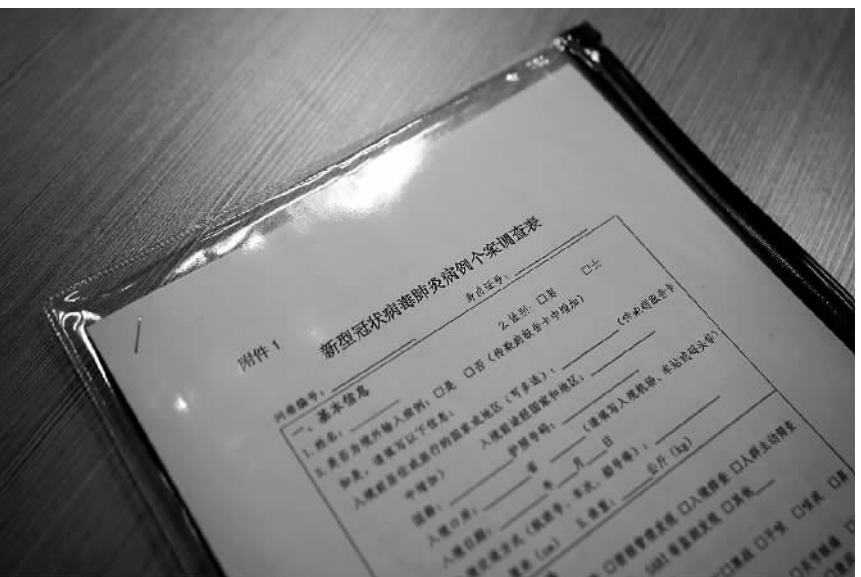 附件 1
新型冠状病毒肺炎病例个案调查表
问卷编号: 身份证号:
一、基本信息
1.姓名: 2.性别: □男 □女
3.是否为境外输入病例: □是 □否 (传染病报告卡中增加)
如果, 请填写以下信息:
入境前居住或旅行的国家或地区 (可多选): (传染病报告卡
中增加) 入境前途经国家和地区:
国籍: 护照号码:
入境口岸: 省 (请填写入境机场、车站或码头等)
入境日期: 年 月 日
(航班号、车次、船号等):
(cm) 5.体重: 公斤 (kg)
□入境筛查 □人群主动筛查
监测发现 □其他
□干咳 □咳痰